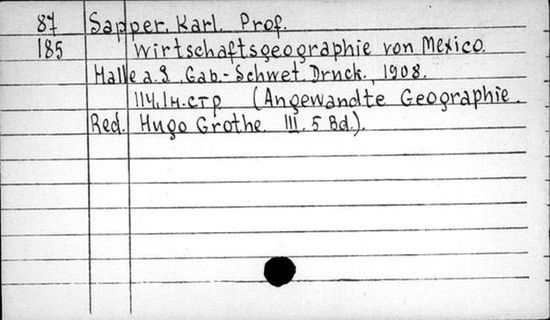 87 Sapper. Karl. Prof.
185 Wirtschaftsgeographie von Mexico.
Halle a. S. Gab.-Schwet. Druck., 1908.
114, 1 н. стр (Angewandte Geographie.
Red. Hugo Grothe. III. 5 Bd.).